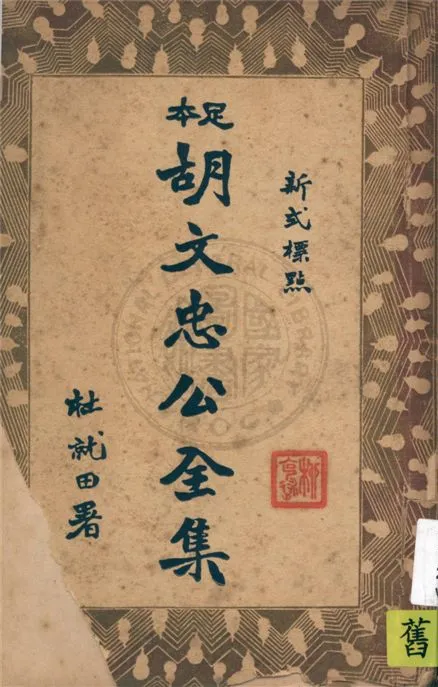 新式標點
足本
胡文忠公全集
杜就田署
舊